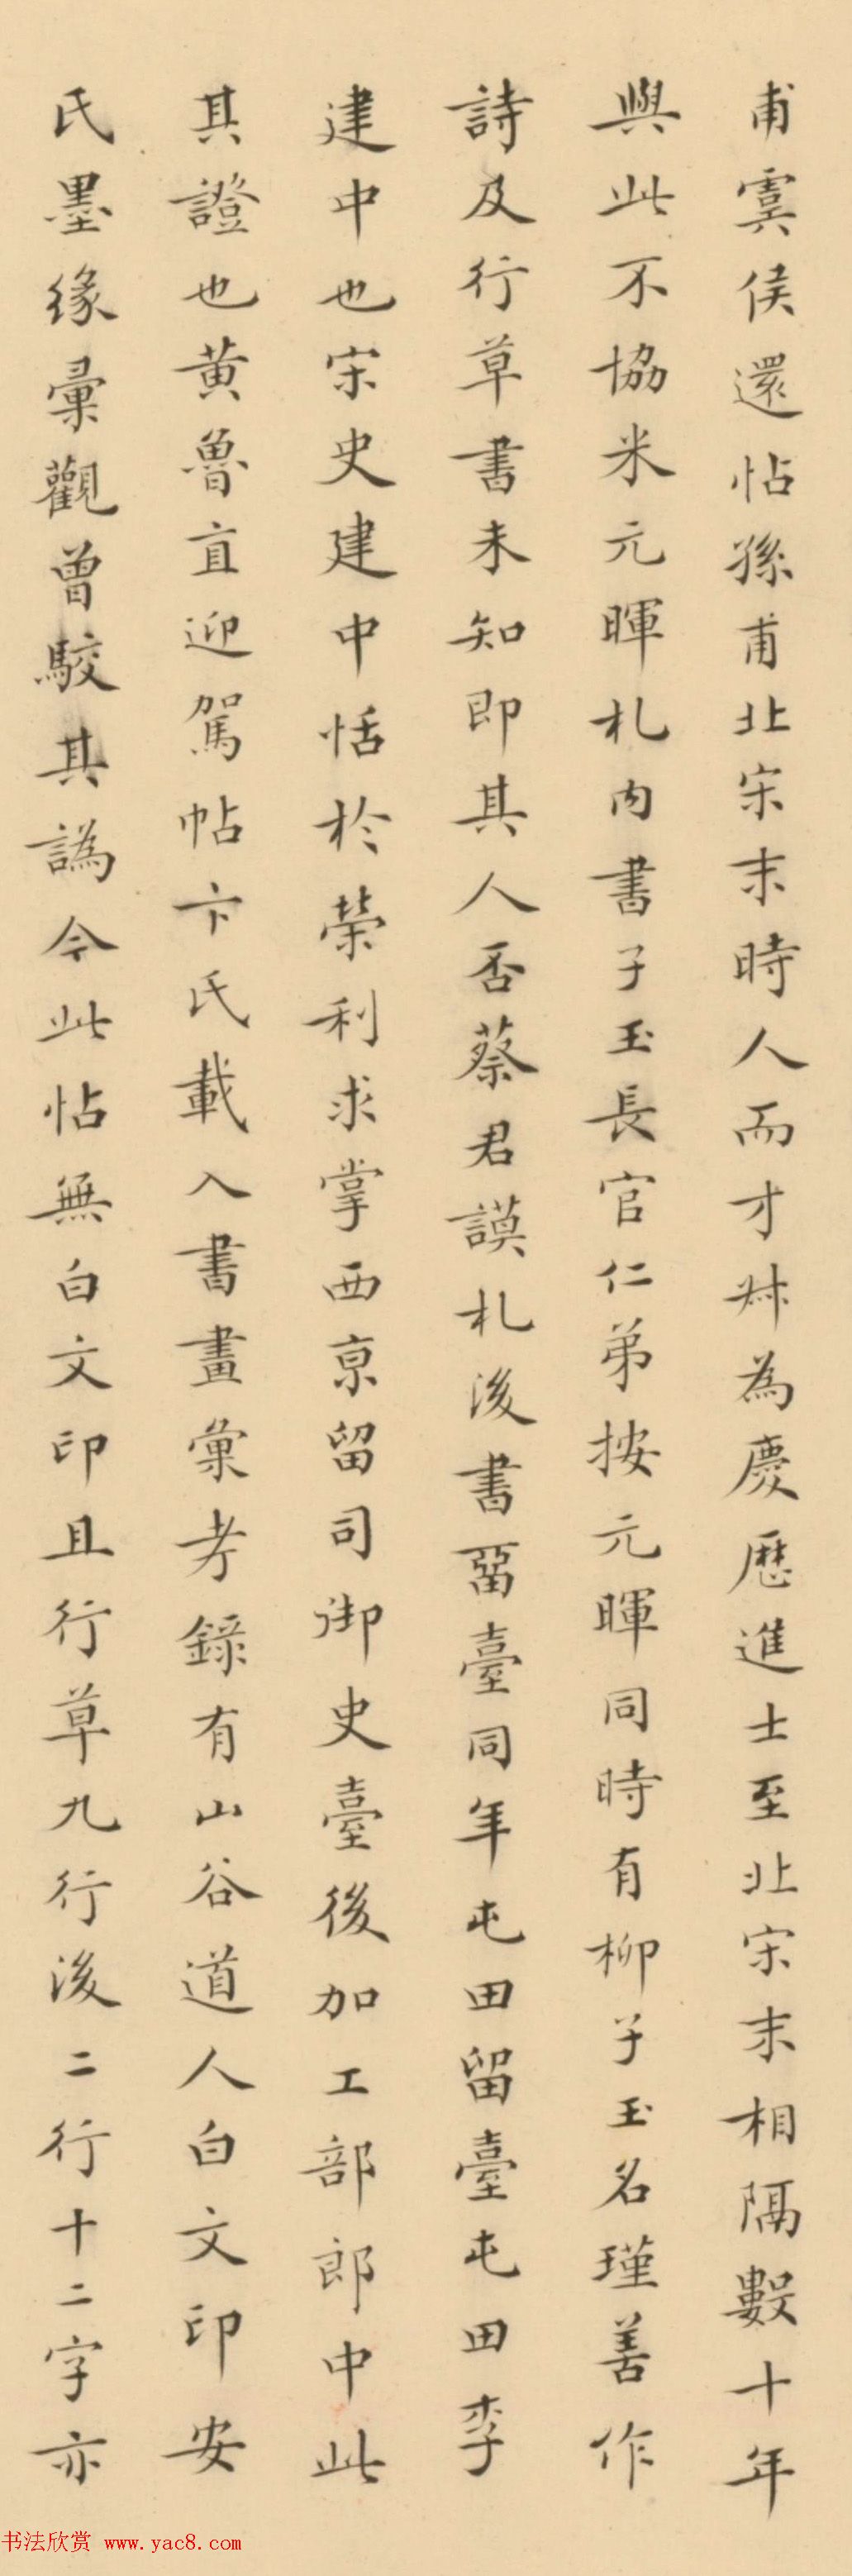 甫虞侯還帖孫甫北宋末時人而才叔為慶歷進士至北宋末相隔數十年
與此不協米元暉札內書子玉長官仁弟按元暉同時有柳子玉名瑾善作
詩及行草書未知即其人否蔡君謨札後書畱臺同年屯田留臺屯田李
建中也宋史建中恬於榮利求掌西京留司御史臺後加工部郎中此
其證也黃魯直迎駕帖卞氏載入書畫彙考錄有山谷道人白文印安
氏墨緣彙觀曾駮其譌今此帖無白文印且行草九行後二行十二字亦
书法欣赏 www.yac8.com